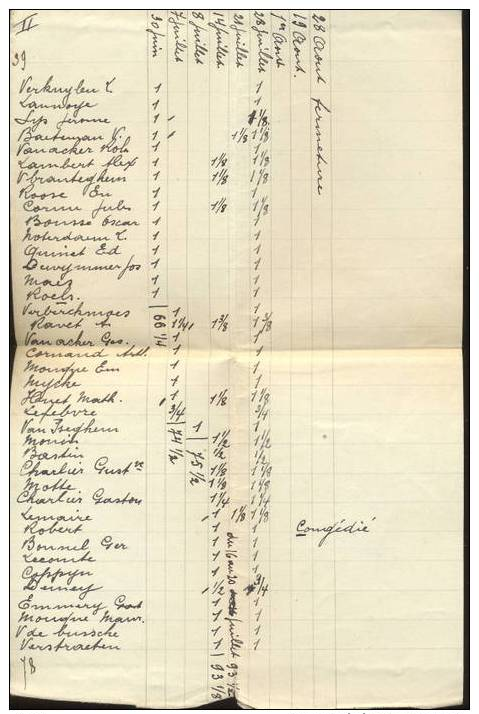 II
39
30 juin
7 juillet
8 juillet
14 juillet
23 juillet
28 juillet
1er Aout
19 Aout.
28 Aout fermeture
Verkuylen L. 1 1
Lannoye 1 1
Lys Jérome 1 1 1/8
Baeteman V. 1 1 1/8 1 1/8
Vanacker Rob 1 1
Lambert Alex 1 1 1/8 1 1/8
Vbranteghem 1 1 1/8 1 1/8
Roose Em 1 1
Cornu Jules 1 1 1/8 1 1/8
Bousse Oscar 1 1
Noterdaem L. 1 1
Quinet Ed 1 1
Dewymmer Jos 1 1
Maes 1 1
Roels. 1 1
66 1/4
Verberckmoes 1 1
Ravet A. 1 1/4 1 3/8 1 3/8
Vanacker Gus. 1 1
Cornand Art. 1 1
Monque Em 1 1
Mycke 1 1
Henet Math. 1 1 1/8 1 1/8
Lefebvre 3/4 3/4
74 1/2
Van Iseghem 1 1
75 1/2
Monin 1 1/2 1 1/2
Bastin 1/2 1/2
Charlier Gustve 1 1/8 1 1/8
Motte 1 1/8 1 1/8
Charlier Gaston 1 1/4 1 1/4
Lemaire 1 1 1/8 1 1/8
Robert 1 1 Congédié
Bonnel Ger 1 1
Lecomte 1 1
Coppyn 1 1
Demey 1 1/2 3/4
Emmery 1 1
Monque Maur. 1 1
V de bussche 1 1
Verstraeten 1 1
du 16 au 20 juillet 93 1/2
93 1/8
78